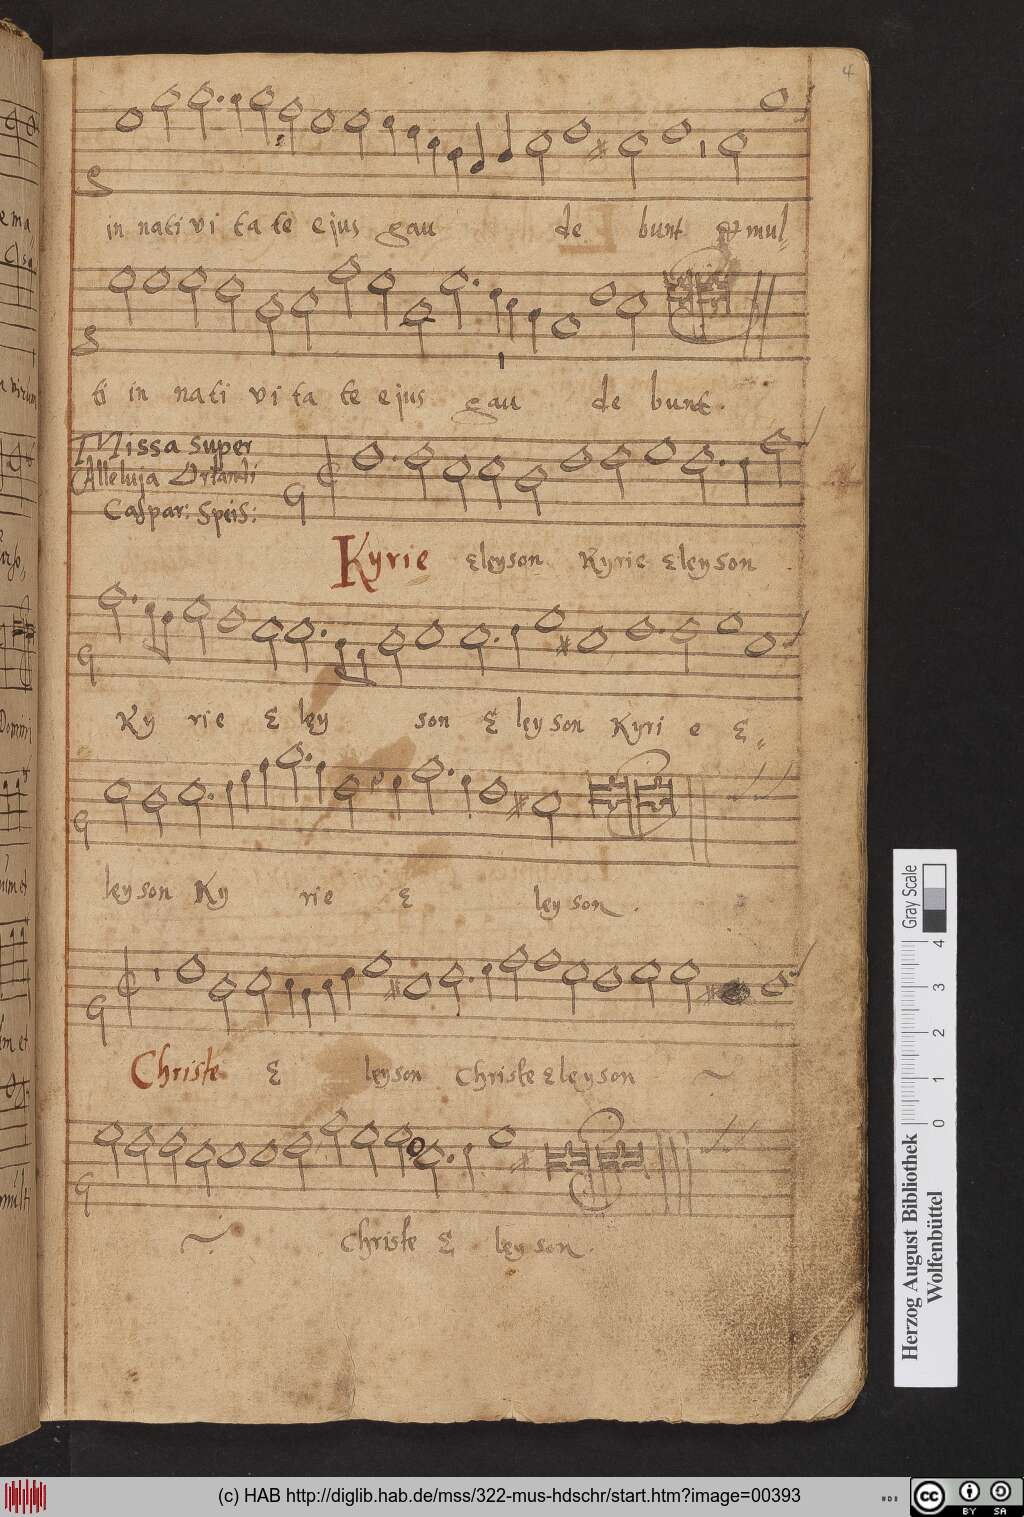 4
in nati vi ta te ejus gau de bunt & mul„
ti in nati vi ta te ejus gau de bunt.
Missa super
Alleluja Orlandi
Caspar: Speis:
Kyrie Eleyson Kyrie Eleyson
Ky rie E ley son E ley son Kyri e E„
leyson Ky rie E ley son.
Christe E leyson Christe Eleyson
Christe E ley son.
Gray Scale
0 1 2 3 4
Herzog August Bibliothek
Wolfenbüttel
(c) HAB http://diglib.hab.de/mss/322-mus-hdschr/start.htm?image=00393
cc BY SA